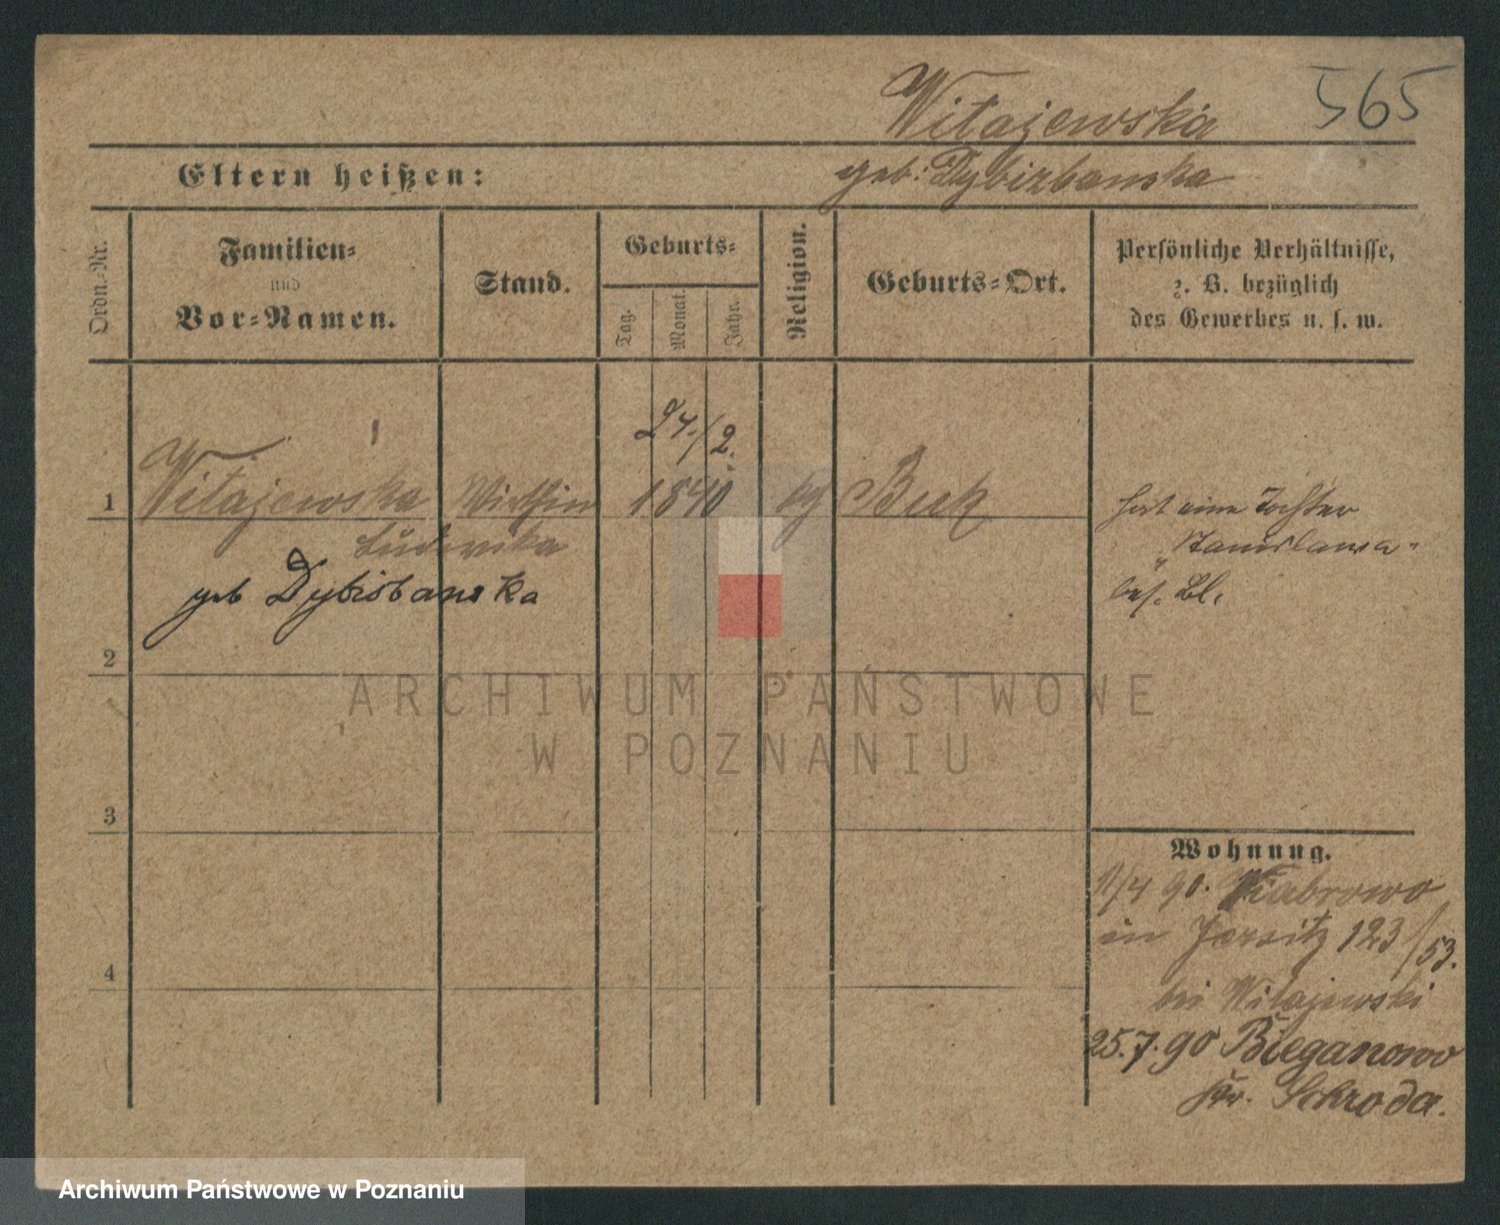 565
Witajewska
Eltern heißen: geb. Dybizbanska
Ordn.-Nr.
Familien-
und
Vor-Namen.
Stand.
Geburts-
Tag. Monat. Jahr.
Religion.
Geburts-Ort.
Persönliche Verhältnisse,
z. B. bezüglich
des Gewerbes u. s. w.
24./2.
1 Witajewska Wirthin 1840 Buk hat eine Tochter
Ludowika "Stanislawa"
geb Dybisbanska bes. Bl.
2
3
4
Wohnung.
1/4 90.
in Jersitz 123/53.
bei Witajewski
25.7.90 Bieganowo
Kr. Schroda.
ARCHIWUM PAŃSTWOWE
W POZNANIU
Archiwum Państwowe w Poznaniu